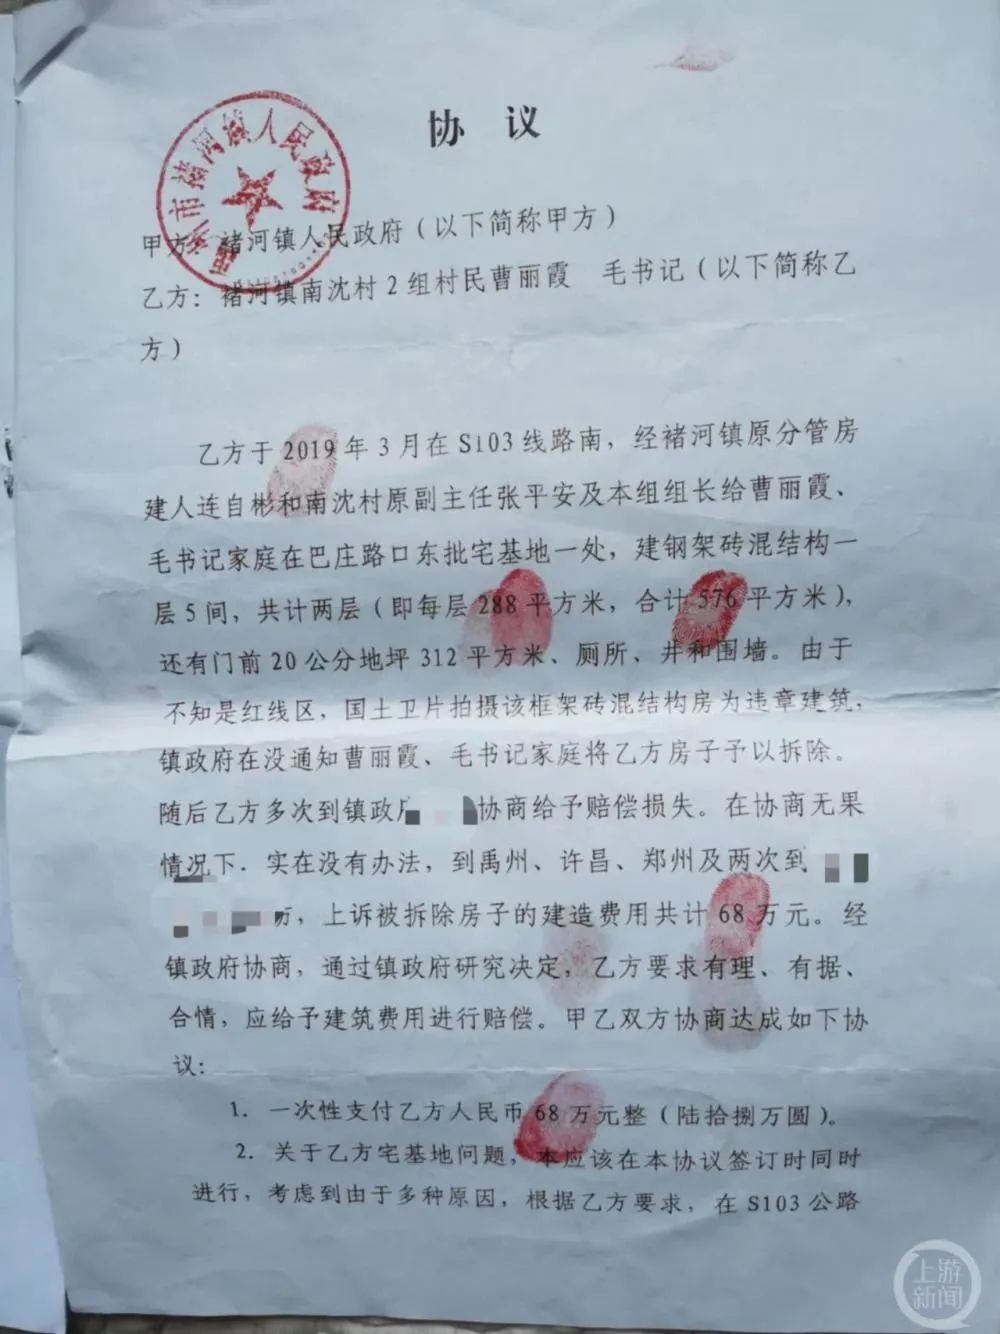 协 议
市褚河镇人民政府
甲方 褚河镇人民政府（以下简称甲方）
乙方：褚河镇南沈村2组村民曹丽霞 毛书记（以下简称乙
方）
乙方于2019年3月在S103线路南，经褚河镇原分管房
建人连自彬和南沈村原副主任张平安及本组组长给曹丽霞、
毛书记家庭在巴庄路口东批宅基地一处，建钢架砖混结构一
层5间，共计两层（即每层288平方米，合计576平方米），
还有门前20公分地坪312平方米、厕所、井和围墙。由于
不知是红线区，国土卫片拍摄该框架砖混结构房为违章建筑，
镇政府在没通知曹丽霞、毛书记家庭将乙方房子予以拆除。
随后乙方多次到镇政 协商给予赔偿损失。在协商无果
情况下．实在没有办法，到禹州、许昌、郑州及两次到
，上诉被拆除房子的建造费用共计68万元。经
镇政府协商，通过镇政府研究决定，乙方要求有理、有据、
合情，应给予建筑费用进行赔偿。甲乙双方协商达成如下协
议：
1．一次性支付乙方人民币68万元整（陆拾捌万圆）。
2．关于乙方宅基地问题，本应该在本协议签订时同时
进行，考虑到由于多种原因，根据乙方要求，在S103公路
上游
新闻